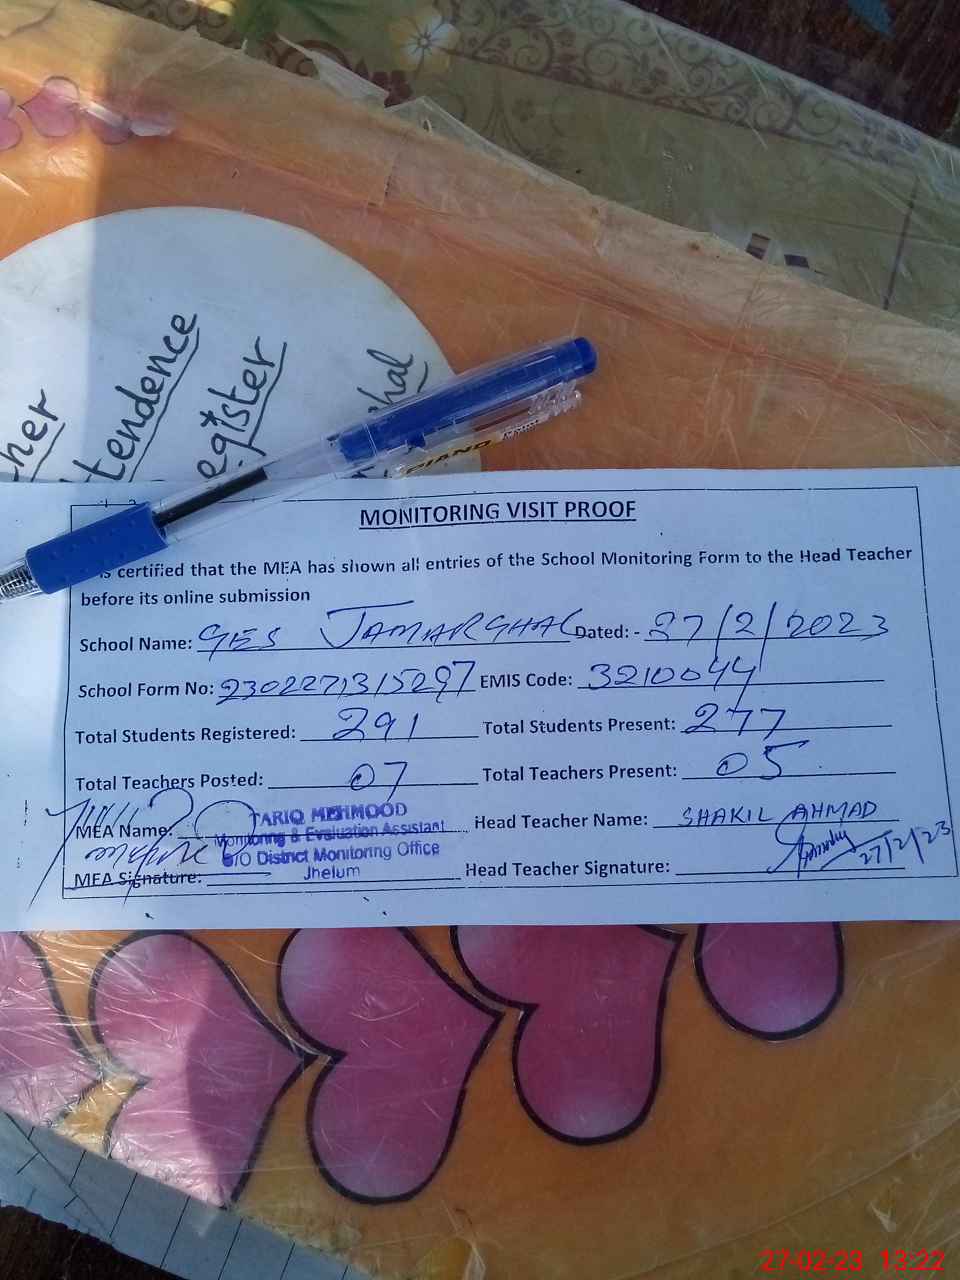 tendence
egister
PIANO
Point
MONITORING VISIT PROOF
is certified that the MEA has shown all entries of the School Monitoring Form to the Head Teacher
before its online submission
School Name: GES JAMARGHAL Dated: - 27/2/2023
School Form No: 2302271315297 EMIS Code: 3210044
Total Students Registered: 291 Total Students Present: 277
Total Teachers Posted: 07 Total Teachers Present: 05
MEA Name: TARIQ MEHMOOD Head Teacher Name: SHAKIL AHMAD
Monitoring & Evaluation Assistant
O/O District Monitoring Office
Jhelum
MEA Signature: Head Teacher Signature: 27/2/23
27-02-23 13:22